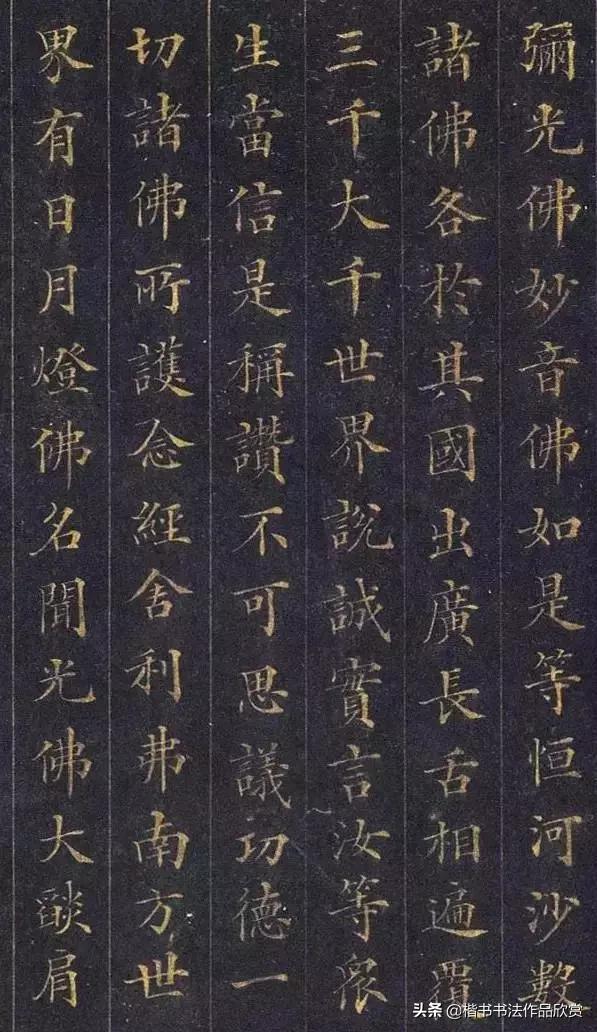 彌光佛妙音佛如是等恒河沙數
諸佛各於其國出廣長舌相遍覆
三千大千世界說誠實言汝等衆
生當信是稱讚不可思議功德一
切諸佛所護念經舍利弗南方世
界有日月燈佛名聞光佛大燄肩
头条 @楷书书法作品欣赏